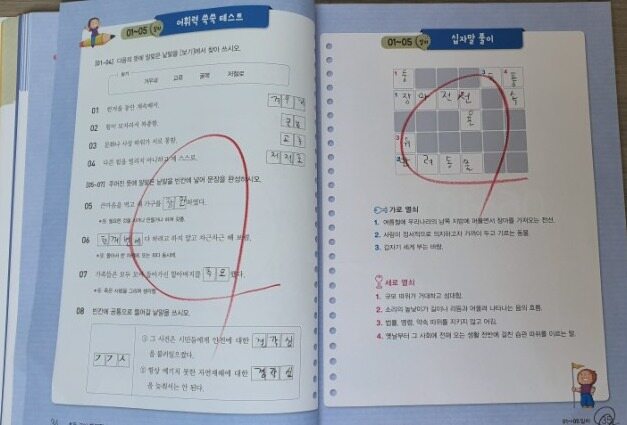 01~05 일차
어휘력 쑥쑥 테스트
[01~04] 다음의 뜻에 알맞은 낱말을 [보기]에서 찾아 쓰시오.
보기
겨우내 교류 굴복 저절로
01 한겨울 동안 계속해서. 겨우내
02 힘이 모자라서 복종함. 굴복
03 문화나 사상 따위가 서로 통함. 교류
04 다른 힘을 빌리지 아니하고 제 스스로. 저절로
[05~07] 주어진 뜻에 알맞은 낱말을 빈칸에 넣어 문장을 완성하시오.
05 큰마음을 먹고 새 가구를 장만하였다.
06 한꺼번에 다 하려고 하지 말고 차근차근 해
07 가족들은 모두 모여 돌아가신 할아버지를 추모했다.
08 빈칸에 공통으로 들어갈 낱말을 쓰시오.
① 그 사건은 시민들에게 안전에 대한 경각심
을 불러일으켰다.
② 항상 예기치 못한 자연재해에 대한 경각심
을 늦춰서는 안 된다.
01~05 일차
십자말 풀이
가로 열쇠
1. 여름철에 우리나라의 남쪽 지방에 머물면서 장마를 가져오는 전선.
2. 사람이 정서적으로 의지하고자 가까이 두고 기르는 동물.
3. 갑자기 세게 부는 바람.
세로 열쇠
1. 규모 따위가 거대하고 성대함.
2. 소리의 높낮이가 길이나 리듬과 어울려 나타나는 음의 흐름.
3. 법률, 명령, 약속 따위를 지키지 않고 어김.
4. 옛날부터 그 사회에 전해 오는 생활 전반에 걸친 습관 따위를 이르는 말.
35